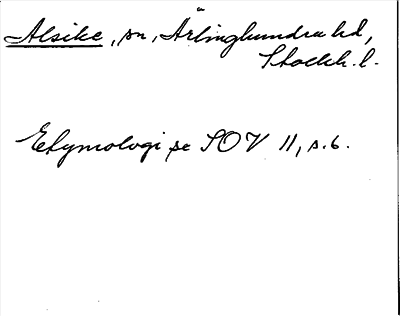 Alsike, sn, Ärlinghundra hd,
Stockh. l.
Etymologi se SOV 11, s. 6.